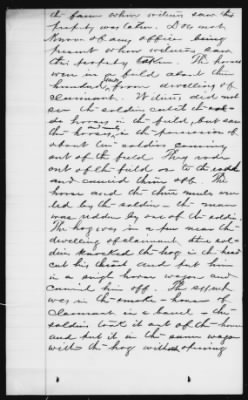 the farm when witness saw his
property was taken. Does not
know of any officer being
present when witness saw
this property taken. The horses
were in field about three
hundred yards from dwelling of
claimant. Witness did not
see the soldiers catch the
horses in the field, but saw
the horses and mule in the possession of
about soldiers coming
out of the field. They rode
out of the field on to the road
and carried them off. The
horse and the three mules were
led by the soldiers - the mare
was ridden by one of the soldiers.
The hog was in a pen near the
dwelling of claimant. The sol-
diers knocked the hog in the head
cut his throat and put him
in a single horse wagon and
carried him off. The syrup
was in the smoke-house of
claimant in a barrel - the
soldiers took it out of the house
and put it in the same wagon
with the hog without opening